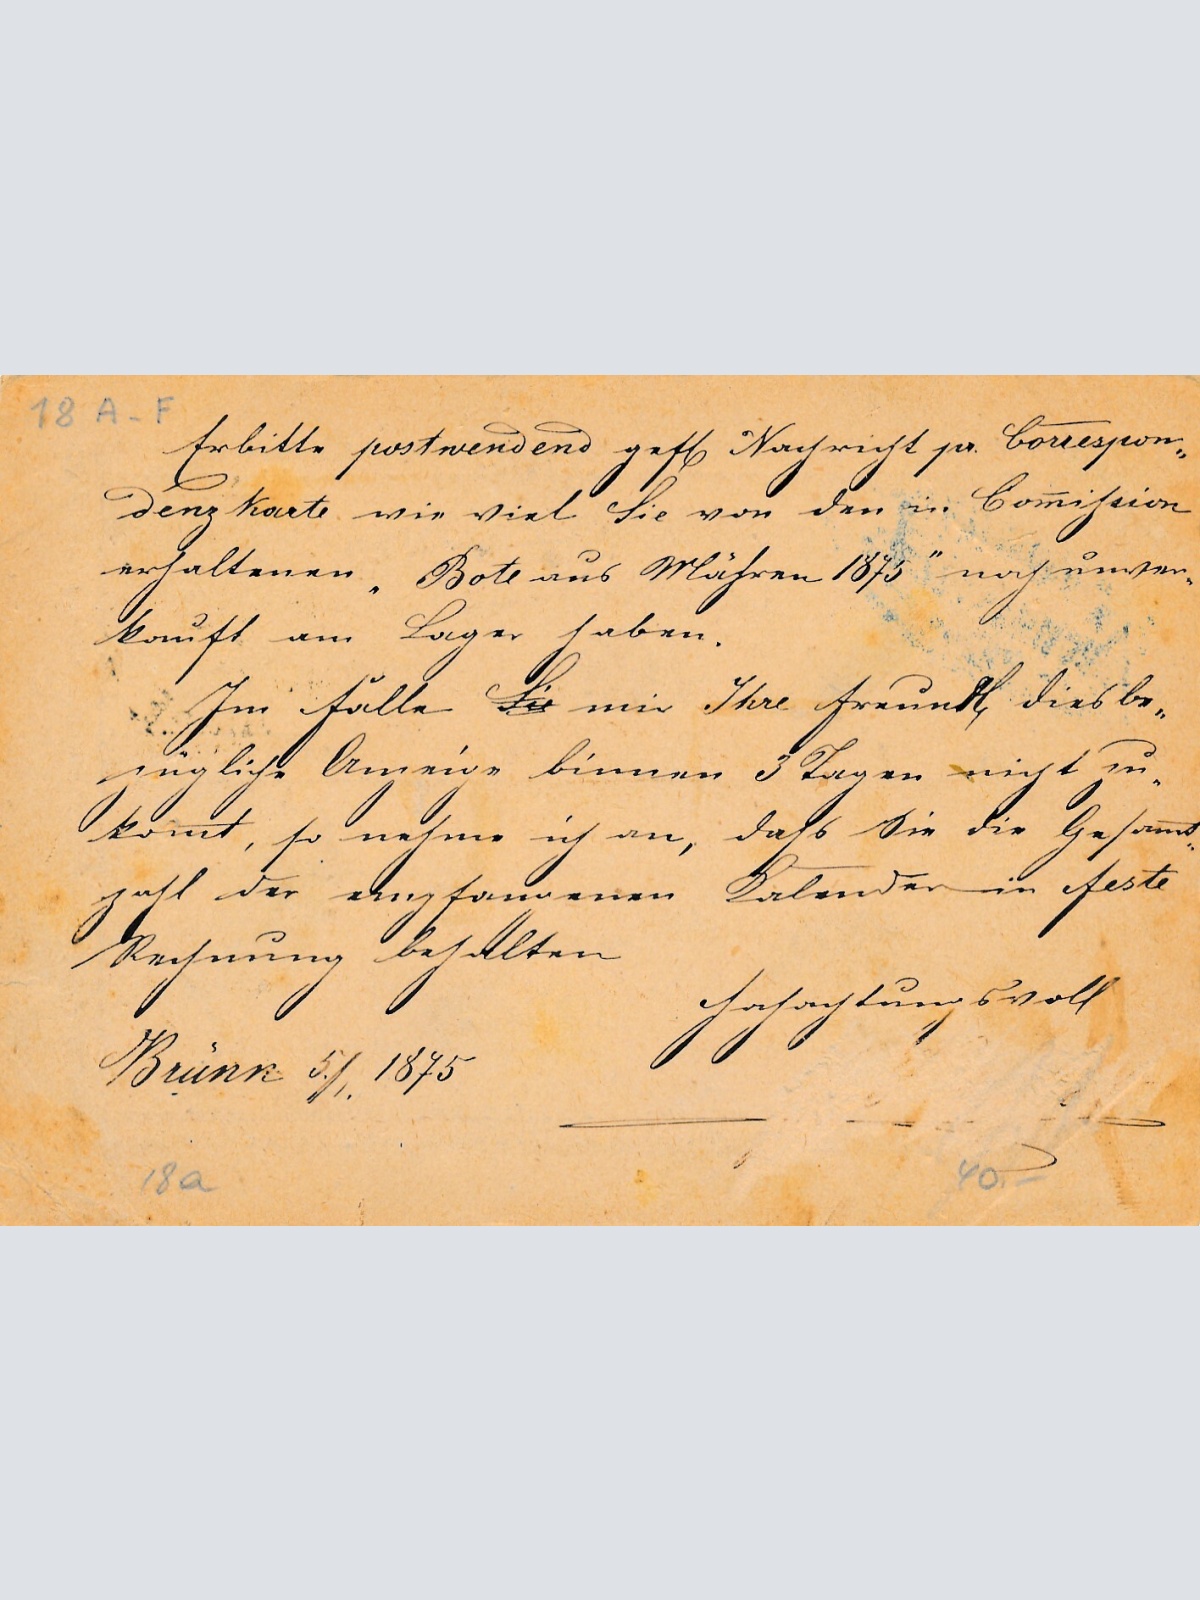 18 A-F
Erbitte postwendend gefl Nachricht pr. Correspon„
denzkarte wie viel Sie von den in Com̄ission
erhaltenen „Bote aus Mähren 1875" noch unver„
kauft am Lager haben.
Im Falle Sie mir Ihre freundl, diesbe„
zügliche Anzeige binnen 3 Tagen nicht zu„
kom̄t, so nehme ich an, dass Sie die Gesam̄t„
zahl der empfangenen Kalender in feste
Rechnung behalten
Hochachtungsvoll
Brünn 5./1. 1875
18a
40.-